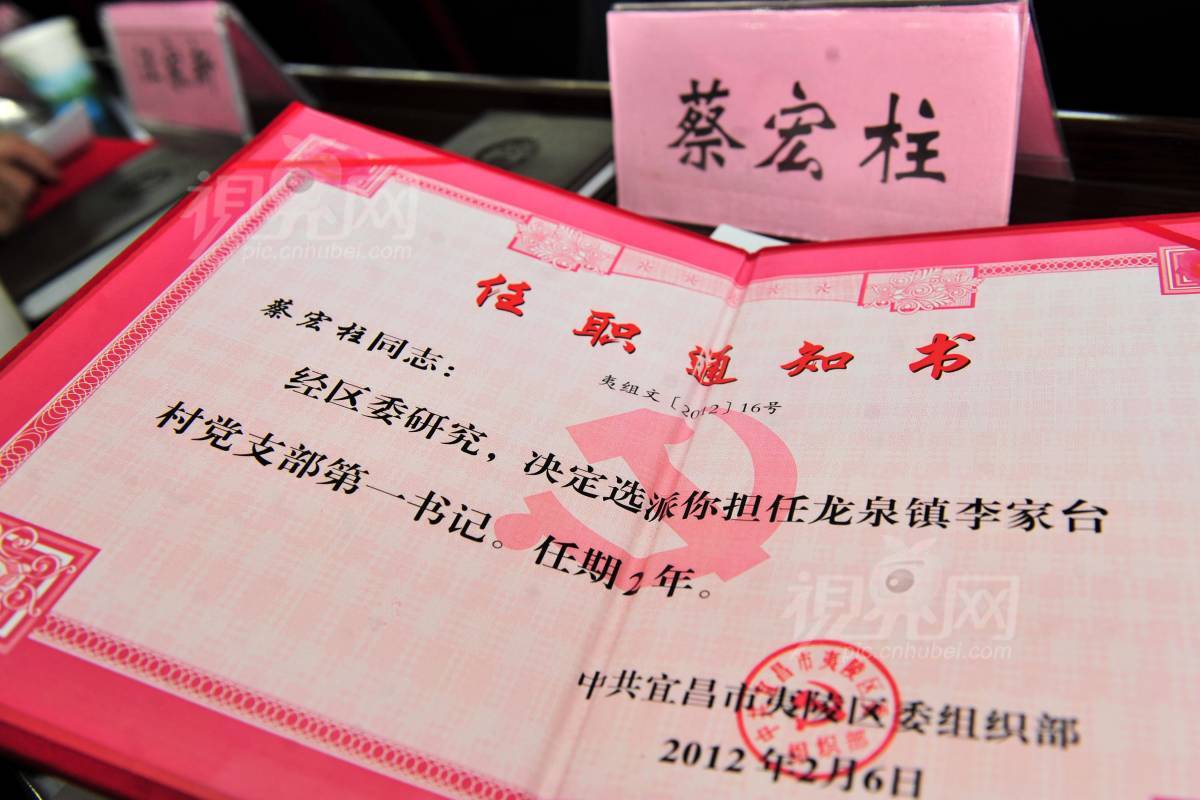 蔡宏柱
視界网
pic.cnhubei.com
任职通知书
夷组文〔2012〕16号
蔡宏柱同志：
经区委研究，决定选派你担任龙泉镇李家台
村党支部第一书记。任期2年。
視界网
pic.cnhubei.com
中共宜昌市夷陵区委组织部
2012年2月6日
中共宜昌市夷陵区委
组织部